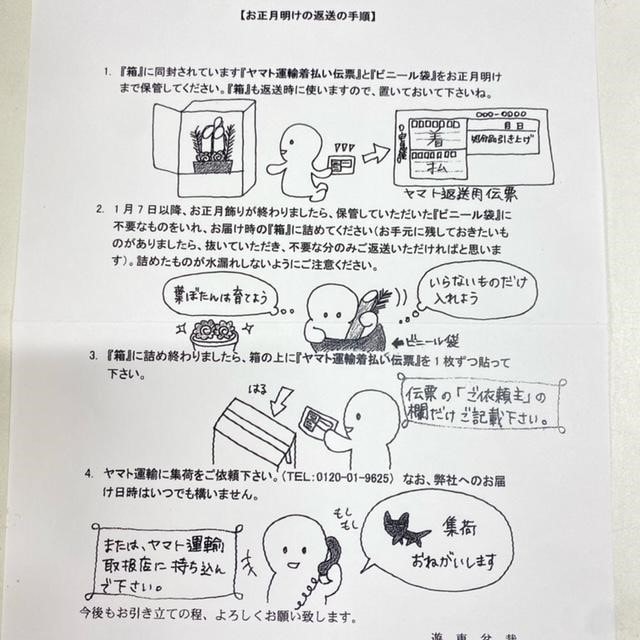 【お正月明けの返送の手順】
1. 『箱』に同封されています『ヤマト運輸着払い伝票』と『ビニール袋』をお正月明け
まで保管してください。『箱』も返送時に使いますので、置いておいて下さいね。
月 日
着
払
処分品引き上げ
ヤマト返送用伝票
2. 1月7日以降、お正月飾りが終わりましたら、保管していただいた『ビニール袋』に
不要なものをいれ、お届け時の『箱』に詰めてください（お手元に残しておきたいも
のがありましたら、抜いていただき、不要な分のみご返送いただければと思いま
す）。詰めたものが水漏れしないようにご注意ください。
葉ぼたんは育てよう
いらないものだけ
入れよう
←ビニール袋
3. 『箱』に詰め終わりましたら、箱の上に『ヤマト運輸着払い伝票』を1枚ずつ貼って
下さい。
はる
伝票の「ご依頼主」の
欄だけご記載下さい。
4. ヤマト運輸に集荷をご依頼下さい。（TEL:0120-01-9625） なお、弊社へのお届
け日時はいつでも構いません。
または、ヤマト運輸
取扱店に持ち込ん
で下さい。
もし
もし
集荷
おねがいします
今後もお引き立ての程、よろしくお願い致します。